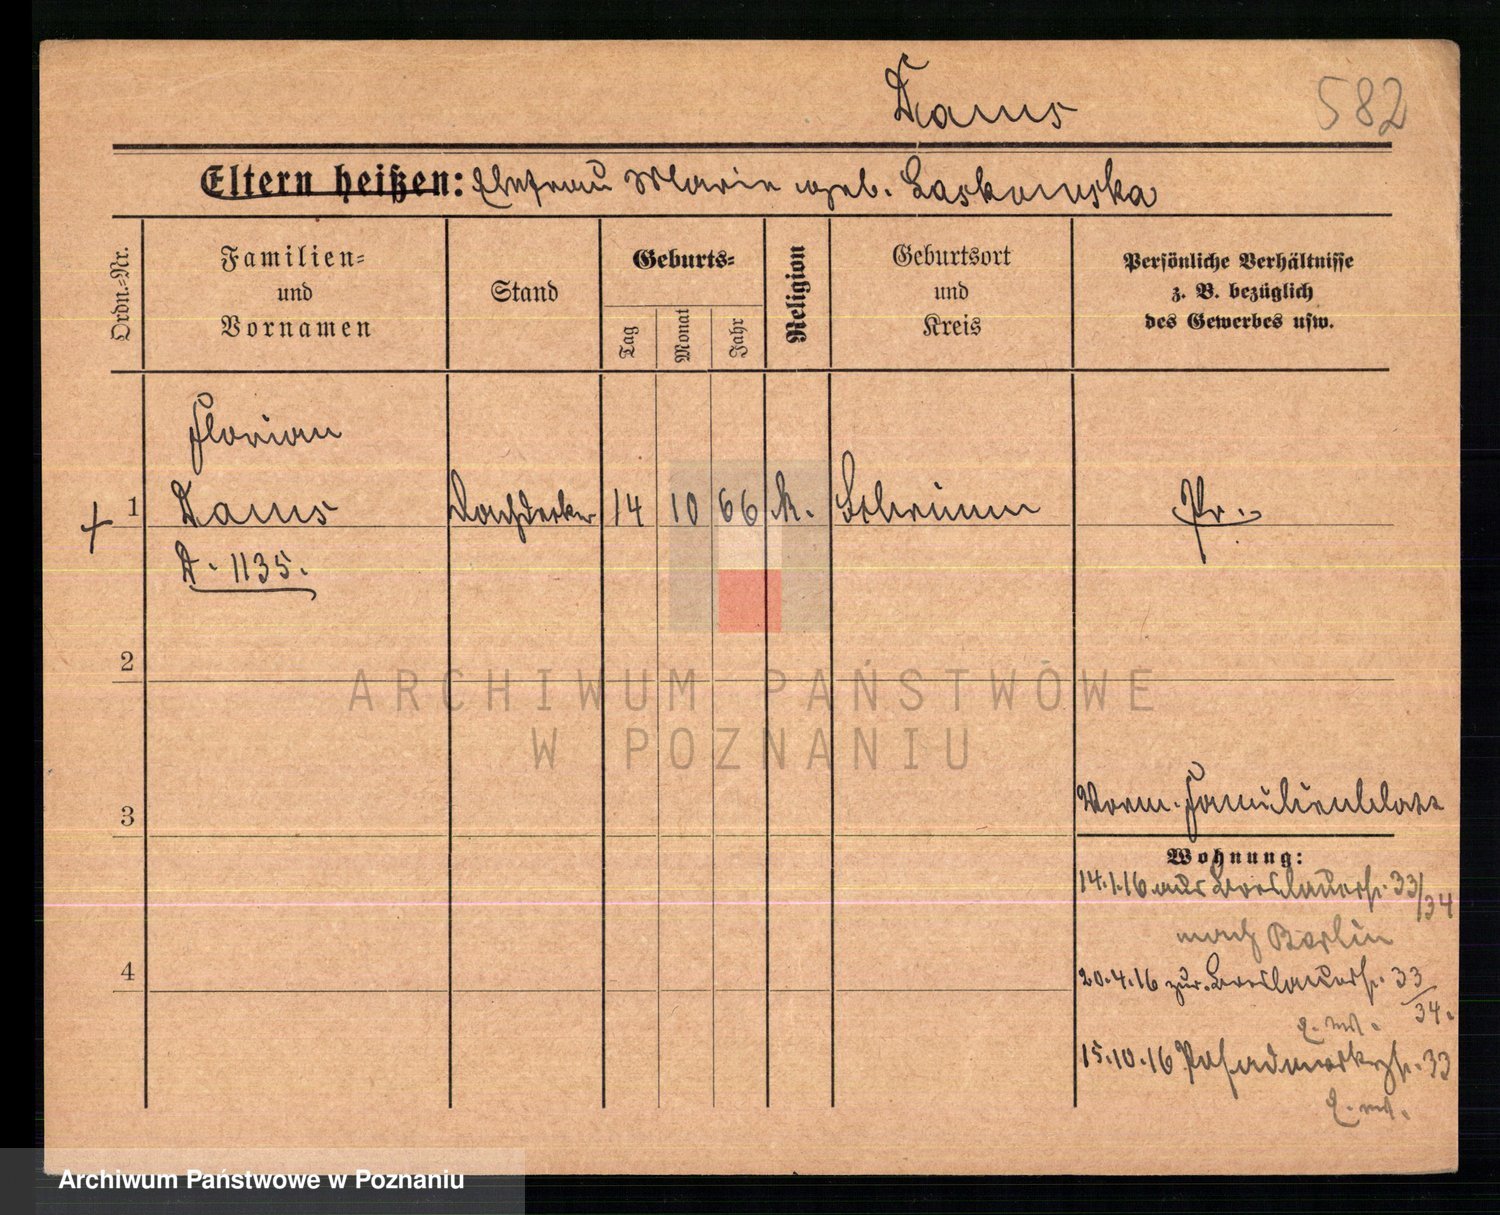 Dams
582
Eltern heißen: Ehefrau Marie geb. Laskowska
Ordn.-Nr.
Familien-
und
Vornamen
Stand
Geburts-
Tag
Monat
Jahr
Religion
Geburtsort
und
Kreis
Persönliche Verhältnisse
z. B. bezüglich
des Gewerbes usw.
Florian
1 Dams Dachdecker 14 10 66 k. Schrimm Pr.
D. 1135.
2
ARCHIWUM PAŃSTWOWE
W POZNANIU
3
Familienblatt
Wohnung:
14.1.16 aus Breslauerst. 33/34
nach Berlin
4
20.4.16 zur. Breslauerst. 33/34.
15.10.16 33
Archiwum Państwowe w Poznaniu